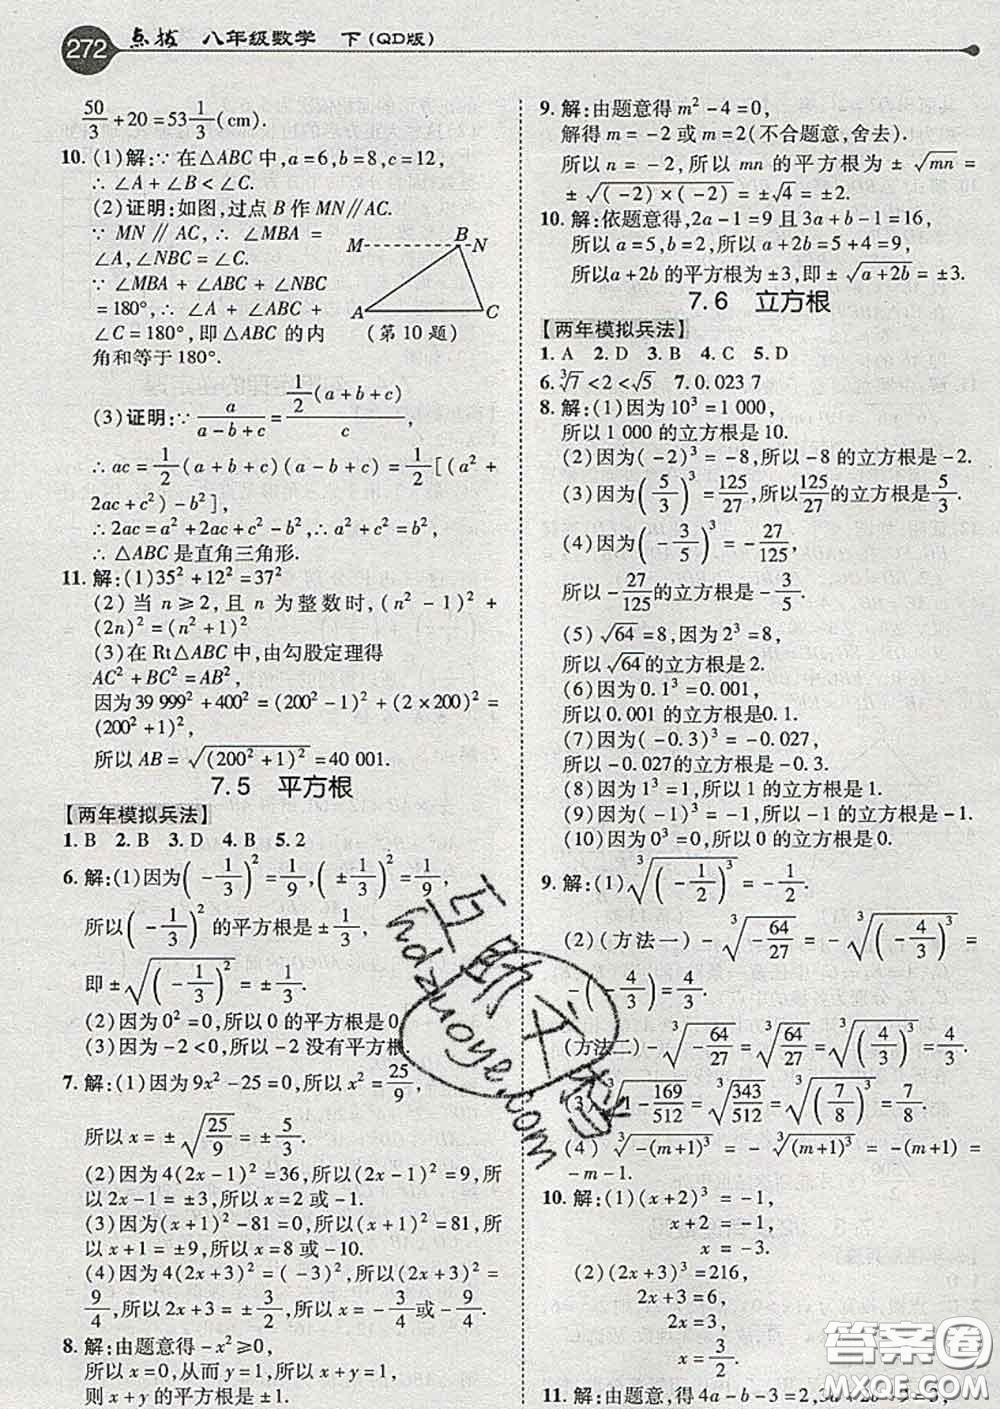 272 点拨 八年级数学 下(QD版)
50/3+20=53 1/3(cm).
10. (1)解:∵在△ABC中,a=6,b=8,c=12,
∴∠A+∠B<∠C.
(2)证明:如图,过点B作MN∥AC.
∵ MN ∥ AC,∴ ∠MBA =
∠A,∠NBC=∠C.
∵ ∠MBA + ∠ABC + ∠NBC
=180°,∴∠A+∠ABC+
∠C=180°,即△ABC的内
角和等于180°.
M B N A C
(第10题)
(3)证明:∵a/(a-b+c)=(1/2(a+b+c))/c,
∴ac=1/2(a+b+c)(a-b+c)=1/2[(a²+
2ac+c²)-b²],
∴2ac=a²+2ac+c²-b²,∴a²+c²=b²,
∴△ABC是直角三角形.
11. 解:(1)35²+12²=37²
(2)当n≥2,且n为整数时,(n²-1)²+
(2n)²=(n²+1)²
(3)在Rt△ABC中,由勾股定理得
AC²+BC²=AB²,
因为39 999²+400²=(200²-1)²+(2×200)²=
(200²+1)²,
所以AB=√((200²+1)²)=40 001.
7.5 平方根
【两年模拟兵法】
1. B 2. B 3. D 4. B 5. 2
6. 解:(1)因为(-1/3)²=1/9,(±1/3)²=1/9,
所以(-1/3)²的平方根是±1/3,
即±√((-1/3)²)=±1/3.
(2)因为0²=0,所以0的平方根是0
(3)因为-2<0,所以-2没有平方根
7. 解:(1)因为9x²-25=0,所以x²=25/9,
所以x=±√(25/9)=±5/3.
(2)因为4(2x-1)²=36,所以(2x-1)²=9,所以
2x-1=±3,所以x=2或x=-1.
(3)因为(x+1)²-81=0,所以(x+1)²=81,所
以x+1=±9,所以x=8或x=-10.
(4)因为4(2x+3)²=(-3)²,所以(2x+3)²=
9/4,所以2x+3=±3/2,所以x=-3/4或-9/4.
8. 解:由题意得-x²≥0,
所以x=0,从而y=1,所以x+y=1,
则x+y的平方根是±1.
9. 解:由题意得m²-4=0,
解得m=-2或m=2(不合题意,舍去).
所以n=-2,所以mn的平方根为±√(mn)=
±√((-2)×(-2))=±√4=±2.
10. 解:依题意得,2a-1=9且3a+b-1=16,
所以a=5,b=2,所以a+2b=5+4=9,
所以a+2b的平方根为±3,即±√(a+2b)=±3.
7.6 立方根
【两年模拟兵法】
1. A 2. D 3. B 4. C 5. D
6. ∛7<2<√5 7. 0.023 7
8. 解:(1)因为10³=1 000,
所以1 000的立方根是10.
(2)因为(-2)³=-8,所以-8的立方根是-2.
(3)因为(5/3)³=125/27,所以125/27的立方根是5/3.
(4)因为(-3/5)³=-27/125,
所以-27/125的立方根是-3/5.
(5)√64=8,因为2³=8,
所以√64的立方根是2.
(6)因为0.1³=0.001,
所以0.001的立方根是0.1.
(7)因为(-0.3)³=-0.027,
所以-0.027的立方根是-0.3.
(8)因为1³=1,所以1的立方根是1.
(9)因为(-1)³=-1,所以-1的立方根是-1.
(10)因为0³=0,所以0的立方根是0.
9. 解:(1)∛((-1/2)³)=-1/2.
(2)(方法一)-∛(-64/27)=-∛((-4/3)³)=
-(-4/3)=4/3.
(方法二)-∛(-64/27)=∛(64/27)=∛((4/3)³)=4/3.
(3)∛(1-169/512)=∛(343/512)=∛((7/8)³)=7/8.
(4)∛(-(m+1)³)=-∛((m+1)³)=-(m+1)=
-m-1.
10. 解:(1)(x+2)³=-1,
x+2=-1,
x=-3.
(2)(2x+3)³=216,
2x+3=6,
2x=3,
x=3/2.
11. 解:由题意,得4a-b-3=2,
互助文档
hdzuoye.com
答案圈
MXQE.COM